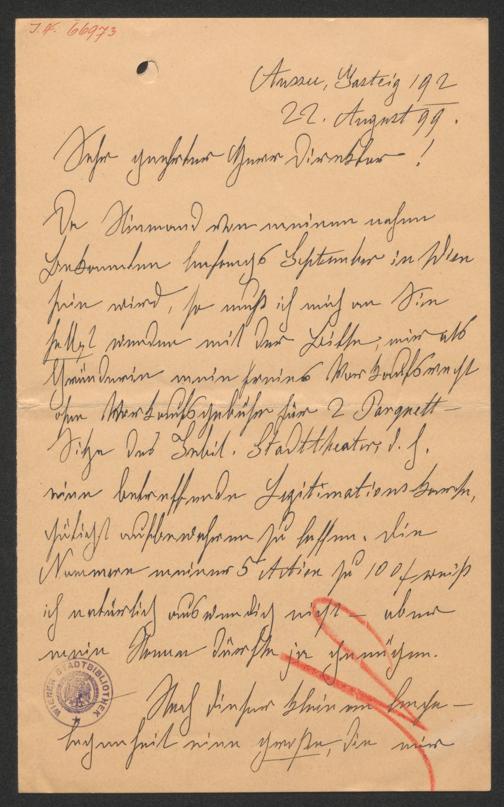 J.N. 66973
Aussee, Gasteig 192
22. August 99.
Sehr geehrter Herr Direktor!
Da Niemand von meinen nahen
Bekannten anfangs September in Wien
sein wird, so muß ich mich an Sie
selbst wenden mit der Bitte, mir als
Gründerin mein freies Vorkaufsrecht
ohne Vorkaufsgebühr für 2 Parquett-
Sitze des Jubil. Stadttheaters, d. h.
eine betreffende Legitimationskarte,
gütigst aufbewahren zu lassen. Die
Nummern meiner 5 Actien zu 100 f weiß
ich natürlich auswendig nicht – aber
mein Name dürfte ja genügen.
WIENER STADTBIBLIOTHEK
Nach dieser kleinen Ange-
legenheit eine große, die mir